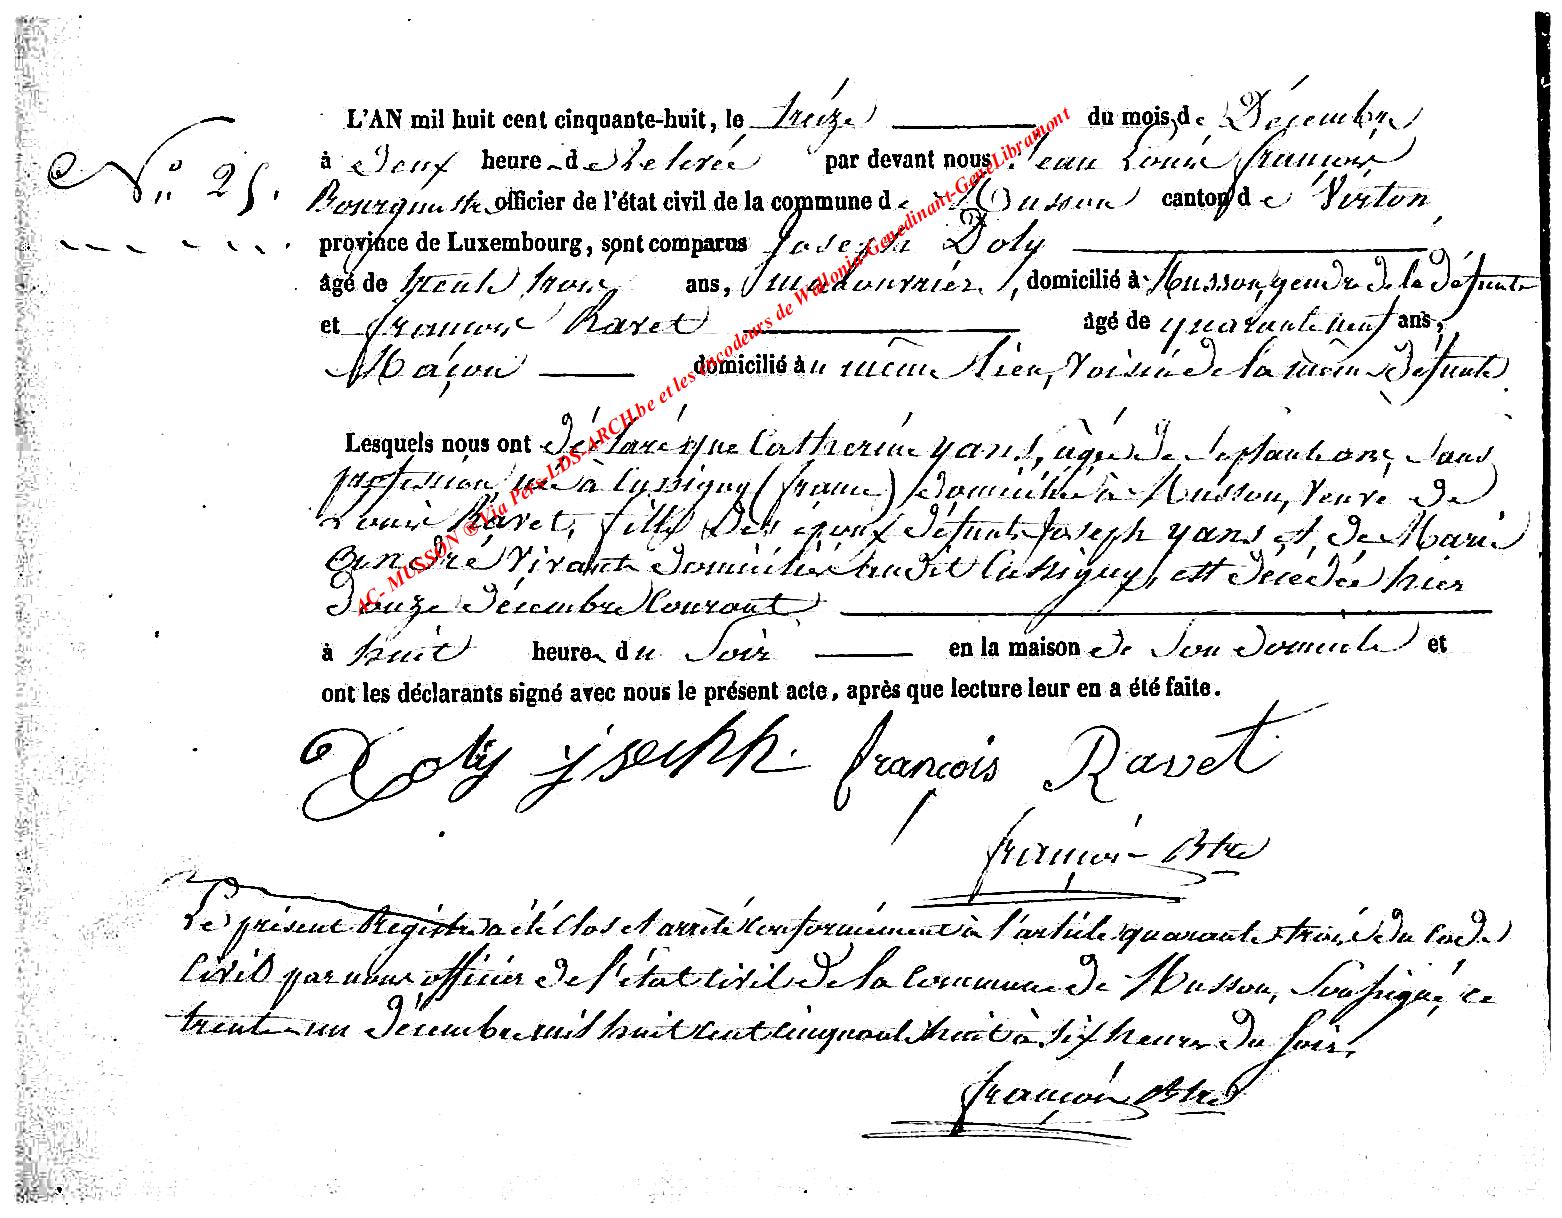 L'AN mil huit cent cinquante-huit, le treize du mois de Décembre
N.° 25.
à deux heures de Relevée par devant nous Jean Louis françois
Bourgmestre officier de l'état civil de la commune de Musson canton de Virton
province de Luxembourg, sont comparus Joseph Doly
âgé de trente trois ans, manouvrier, domicilié à Musson, gendre de la défunte
et françois Ravet âgé de quarante neuf ans,
Maçon domicilié au même lieu, Voisin de la même défunte
Lesquels nous ont déclaré que Catherine yans, âgée de septante ans, sans
profession, née à Cussigny (france) domiciliée à Musson, Veuve de
Louis Ravet, fille des époux défunts Joseph yans et de Marie
André Vivants domiciliés audit Cussigny, est décédée hier
douze décembre Courant
à huit heures du Soir en la maison de Son domicile et
ont les déclarants signé avec nous le présent acte, après que lecture leur en a été faite.
Doly josehh. françois Ravet
françois Btre
Le présent Registre a été Clos et arrêté conformément à l'article quarante trois du Code
Civil par nous officier de l'état Civil de la Commune de Musson, Soussigné, ce
trente un décembre mil huit cent cinquante huit à six heures du Soir.
françois Btre
AC- MUSSON ®Via Pers-LDS-ARCH.be et les encodeurs de Wallonia-Genedinant-GeneLibramont